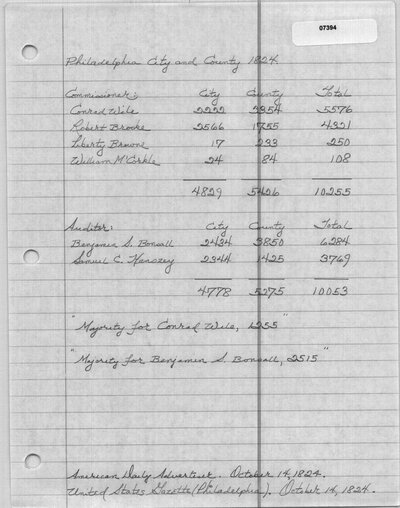 07394
Philadelphia City and County 1824.
Commissioner: City County Total
Conrad Wile 2222 3354 5576
Robert Brooke 2566 1755 4321
Liberty Browne 17 233 250
William 24 84 108
4829 5426 10255
Auditor: City County Total
Benjamin S. Bonsall 2434 3850 6284
Samuel C. 2344 1425 3769
4778 5275 10053
"Majority for Conrad Wile, 1255"
"Majority for Benjamin S. Bonsall, 2515"
American Daily Advertiser. October 14, 1824.
United States Gazette (Phila). October 14, 1824.